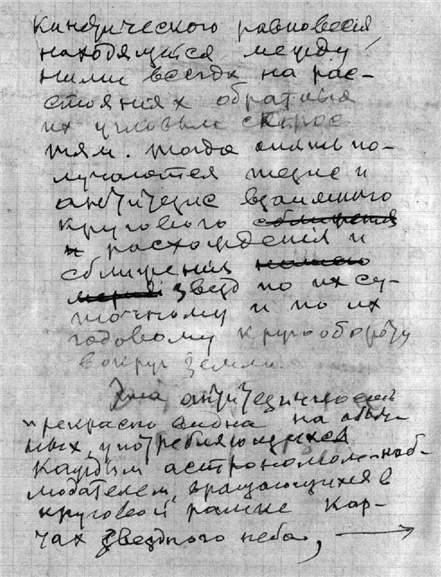 кинетического равновесия,
находящейся между
ними всегда на рас-
стояниях обратных
их угловым скорос-
тям. тогда опять по-
лучаются тезис и
антитезис взаимного
кругового сближения
и расхождения и
сближения звезд по их су-
точному и по их
годовому кругообороту
вокруг земли.
Эта антитезичность
прекрасно видна на обыч-
ных, употребляющихся
каждым астрономом-наб-
людателем, вращающихся в
круговой рамке кар-
тах звездного неба,